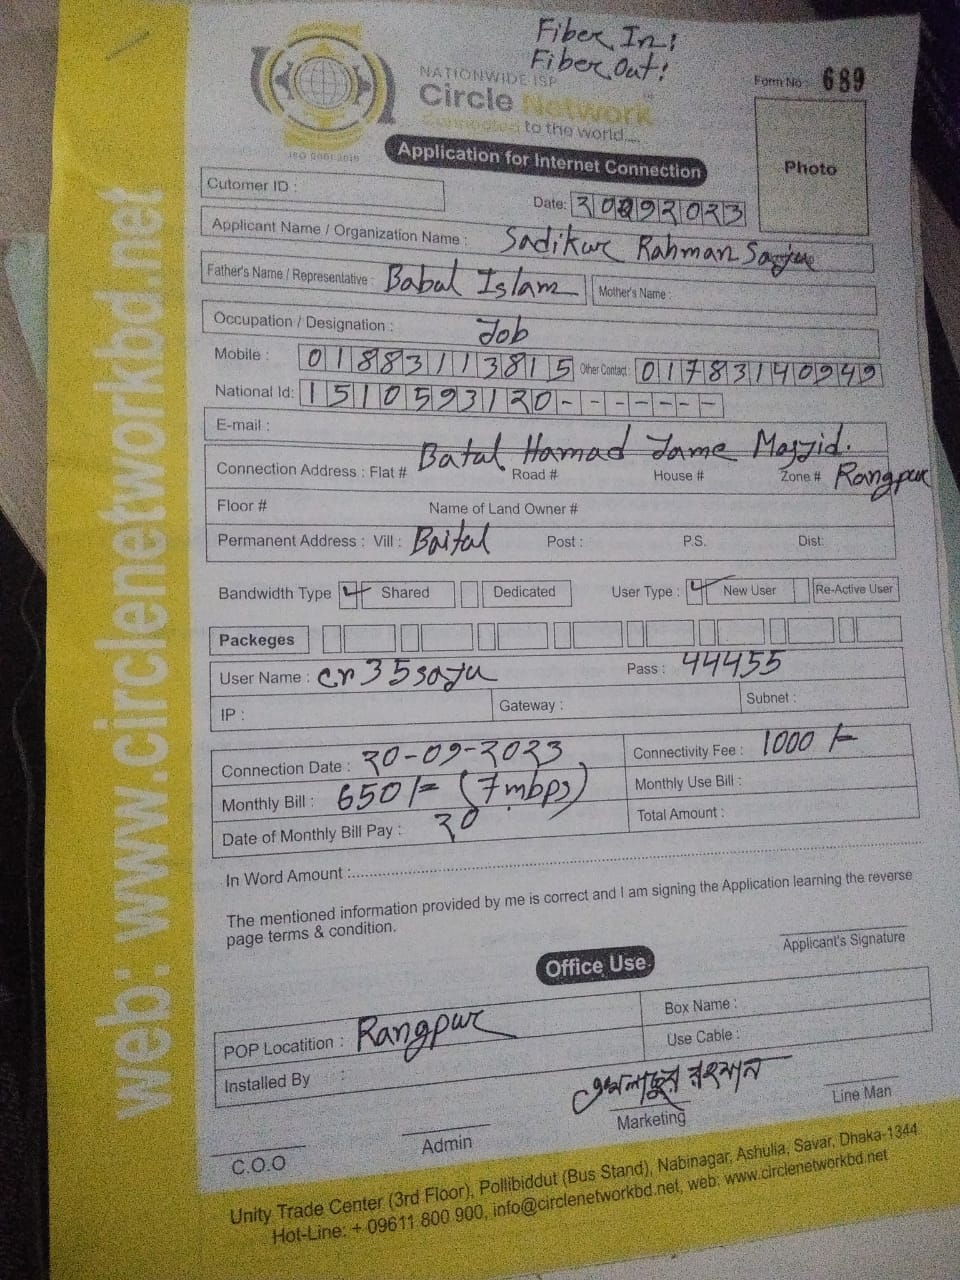 Fiber In:
Fiber Out:
NATIONWIDE ISP
Circle Network
Connected to the world....
ISO 9001:2015
Form No : 689
Application for Internet Connection
Photo
Cutomer ID :
Date: 20092023
Applicant Name / Organization Name : Sadikur Rahman
Father's Name / Representative : Babul Islam
Mother's Name :
Occupation / Designation : Job
Mobile : 01883113815 Other Contact : 01783140949
National Id: 1510593120-------
E-mail :
Batal Hamad Jame Masjid.
Connection Address : Flat # Road # House # Zone # Rangpur
Floor # Name of Land Owner #
Permanent Address : Vill : Baital Post : P.S. Dist:
Bandwidth Type Shared Dedicated User Type : New User Re-Active User
Packeges
User Name : cr35saju Pass : 44455
IP : Gateway : Subnet :
Connection Date : 20-09-2023 Connectivity Fee : 1000/=
Monthly Bill : 650/= (7mbps) Monthly Use Bill :
Date of Monthly Bill Pay : 20 Total Amount :
In Word Amount :
The mentioned information provided by me is correct and I am signing the Application learning the reverse
page terms & condition.
Applicant's Signature
Office Use
POP Locatition : Rangpur Box Name :
Installed By : Use Cable :
রহমান
C.O.O Admin Marketing Line Man
Unity Trade Center (3rd Floor), Pollibiddut (Bus Stand), Nabinagar, Ashulia, Savar, Dhaka-1344
Hot-Line: + 09611 800 900, info@circlenetworkbd.net, web: www.circlenetworkbd.net
web: www.circlenetworkbd.net